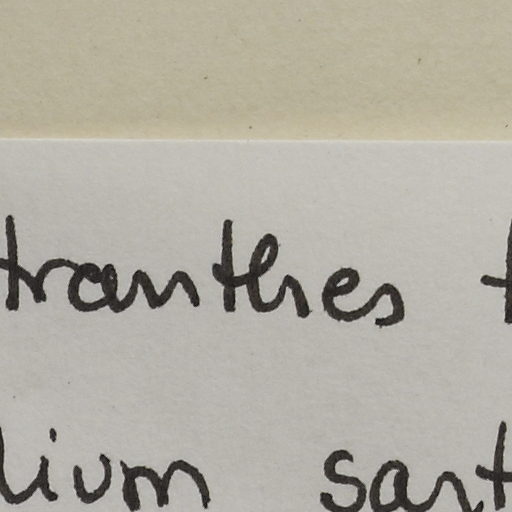 tranthes t
lium sart